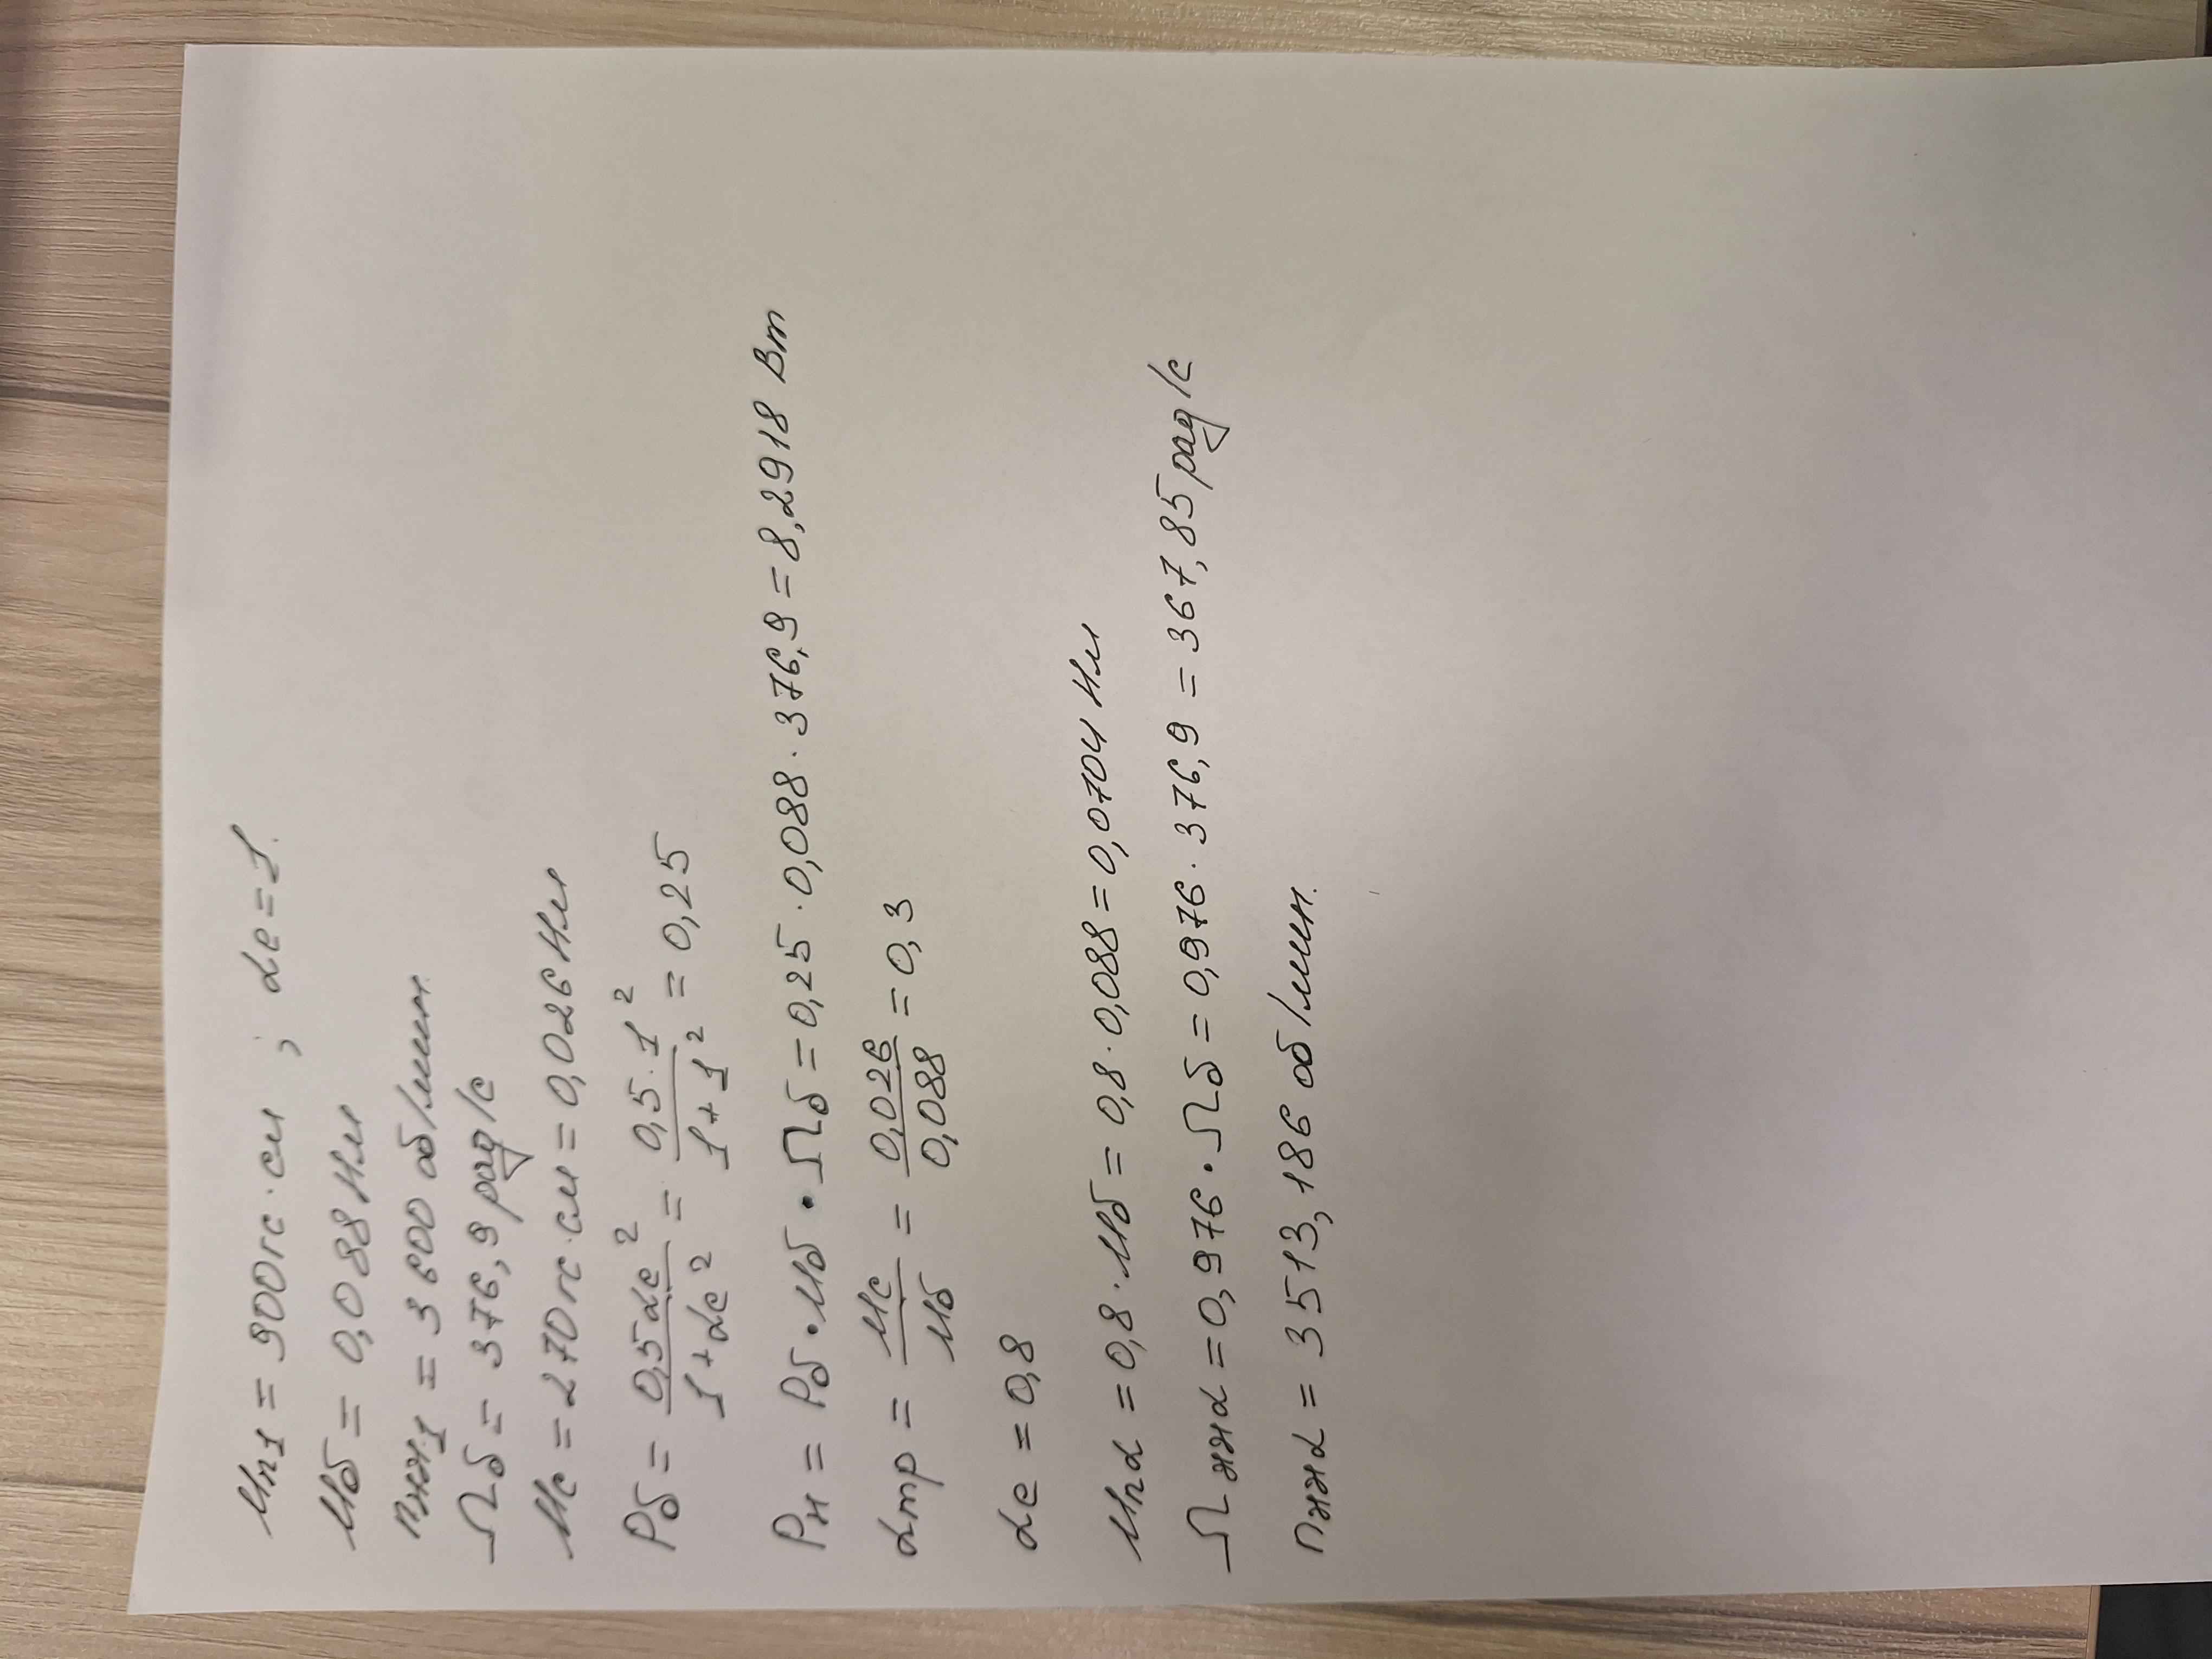 Мп1 = 900 гс·см ; αe = 1.
Мб = 0,088 Нм
nхх1 = 3600 об/мин.
Ωб = 376,9 рад/с
Мс = 270 гс·см = 0,026 Нм
Pб = 0,5αe² / 1+αe² = 0,5·1² / 1+1² = 0,25
Pн = Pб·Мб·Ωб = 0,25·0,088·376,9 = 8,2918 Вт
αтр = Мс / Мб = 0,026 / 0,088 = 0,3
αe = 0,8
Мпα = 0,8·Мб = 0,8·0,088 = 0,0704 Нм
Ωххα = 0,976·Ωб = 0,976·376,9 = 367,85 рад/с
nххα = 3513,186 об/мин.